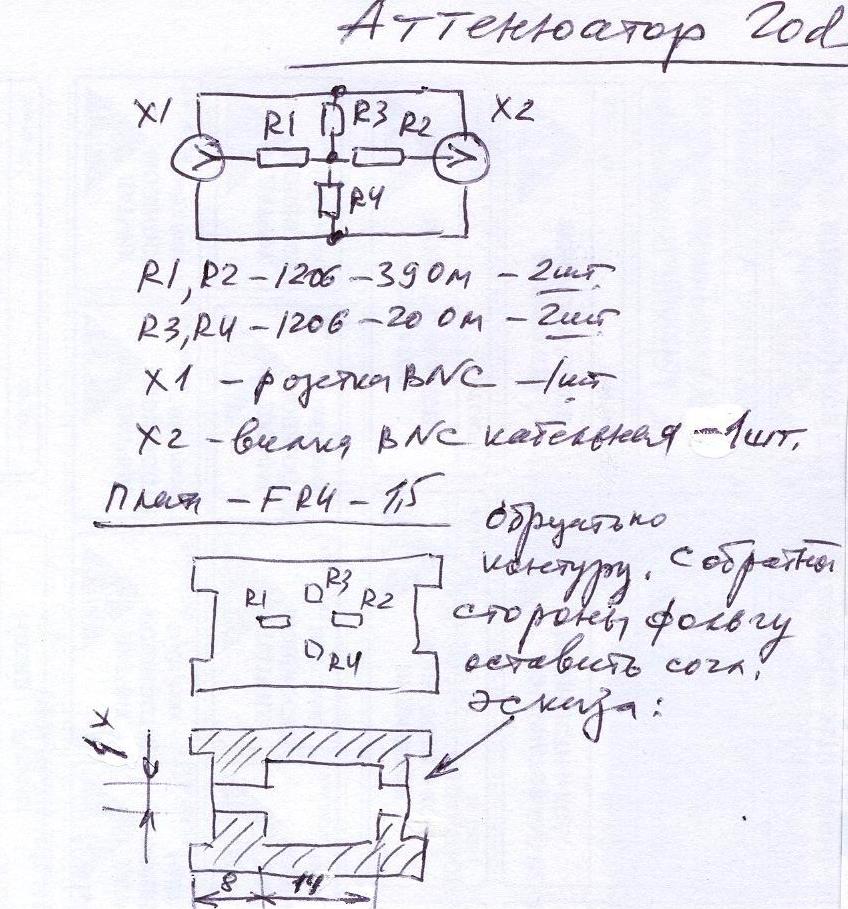 Аттенюатор 20d
X1 R1 R3 R2 X2
R4
R1, R2 - 1206 - 39 Ом - 2шт
R3, R4 - 1206 - 20 Ом - 2шт
X1 - розетка BNC - 1шт
X2 - вилка BNC кабельная - 1шт.
Плата - FR4 - 1,5
обрезать по
контуру. С обратной
стороны фольгу
оставить согл.
эскиза:
R1 R3 R2
R4
8 14